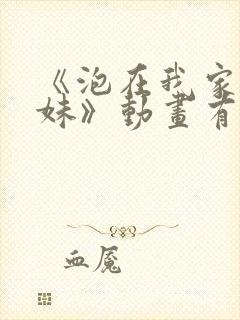 《泡在我家
妹》動畫有
血魘